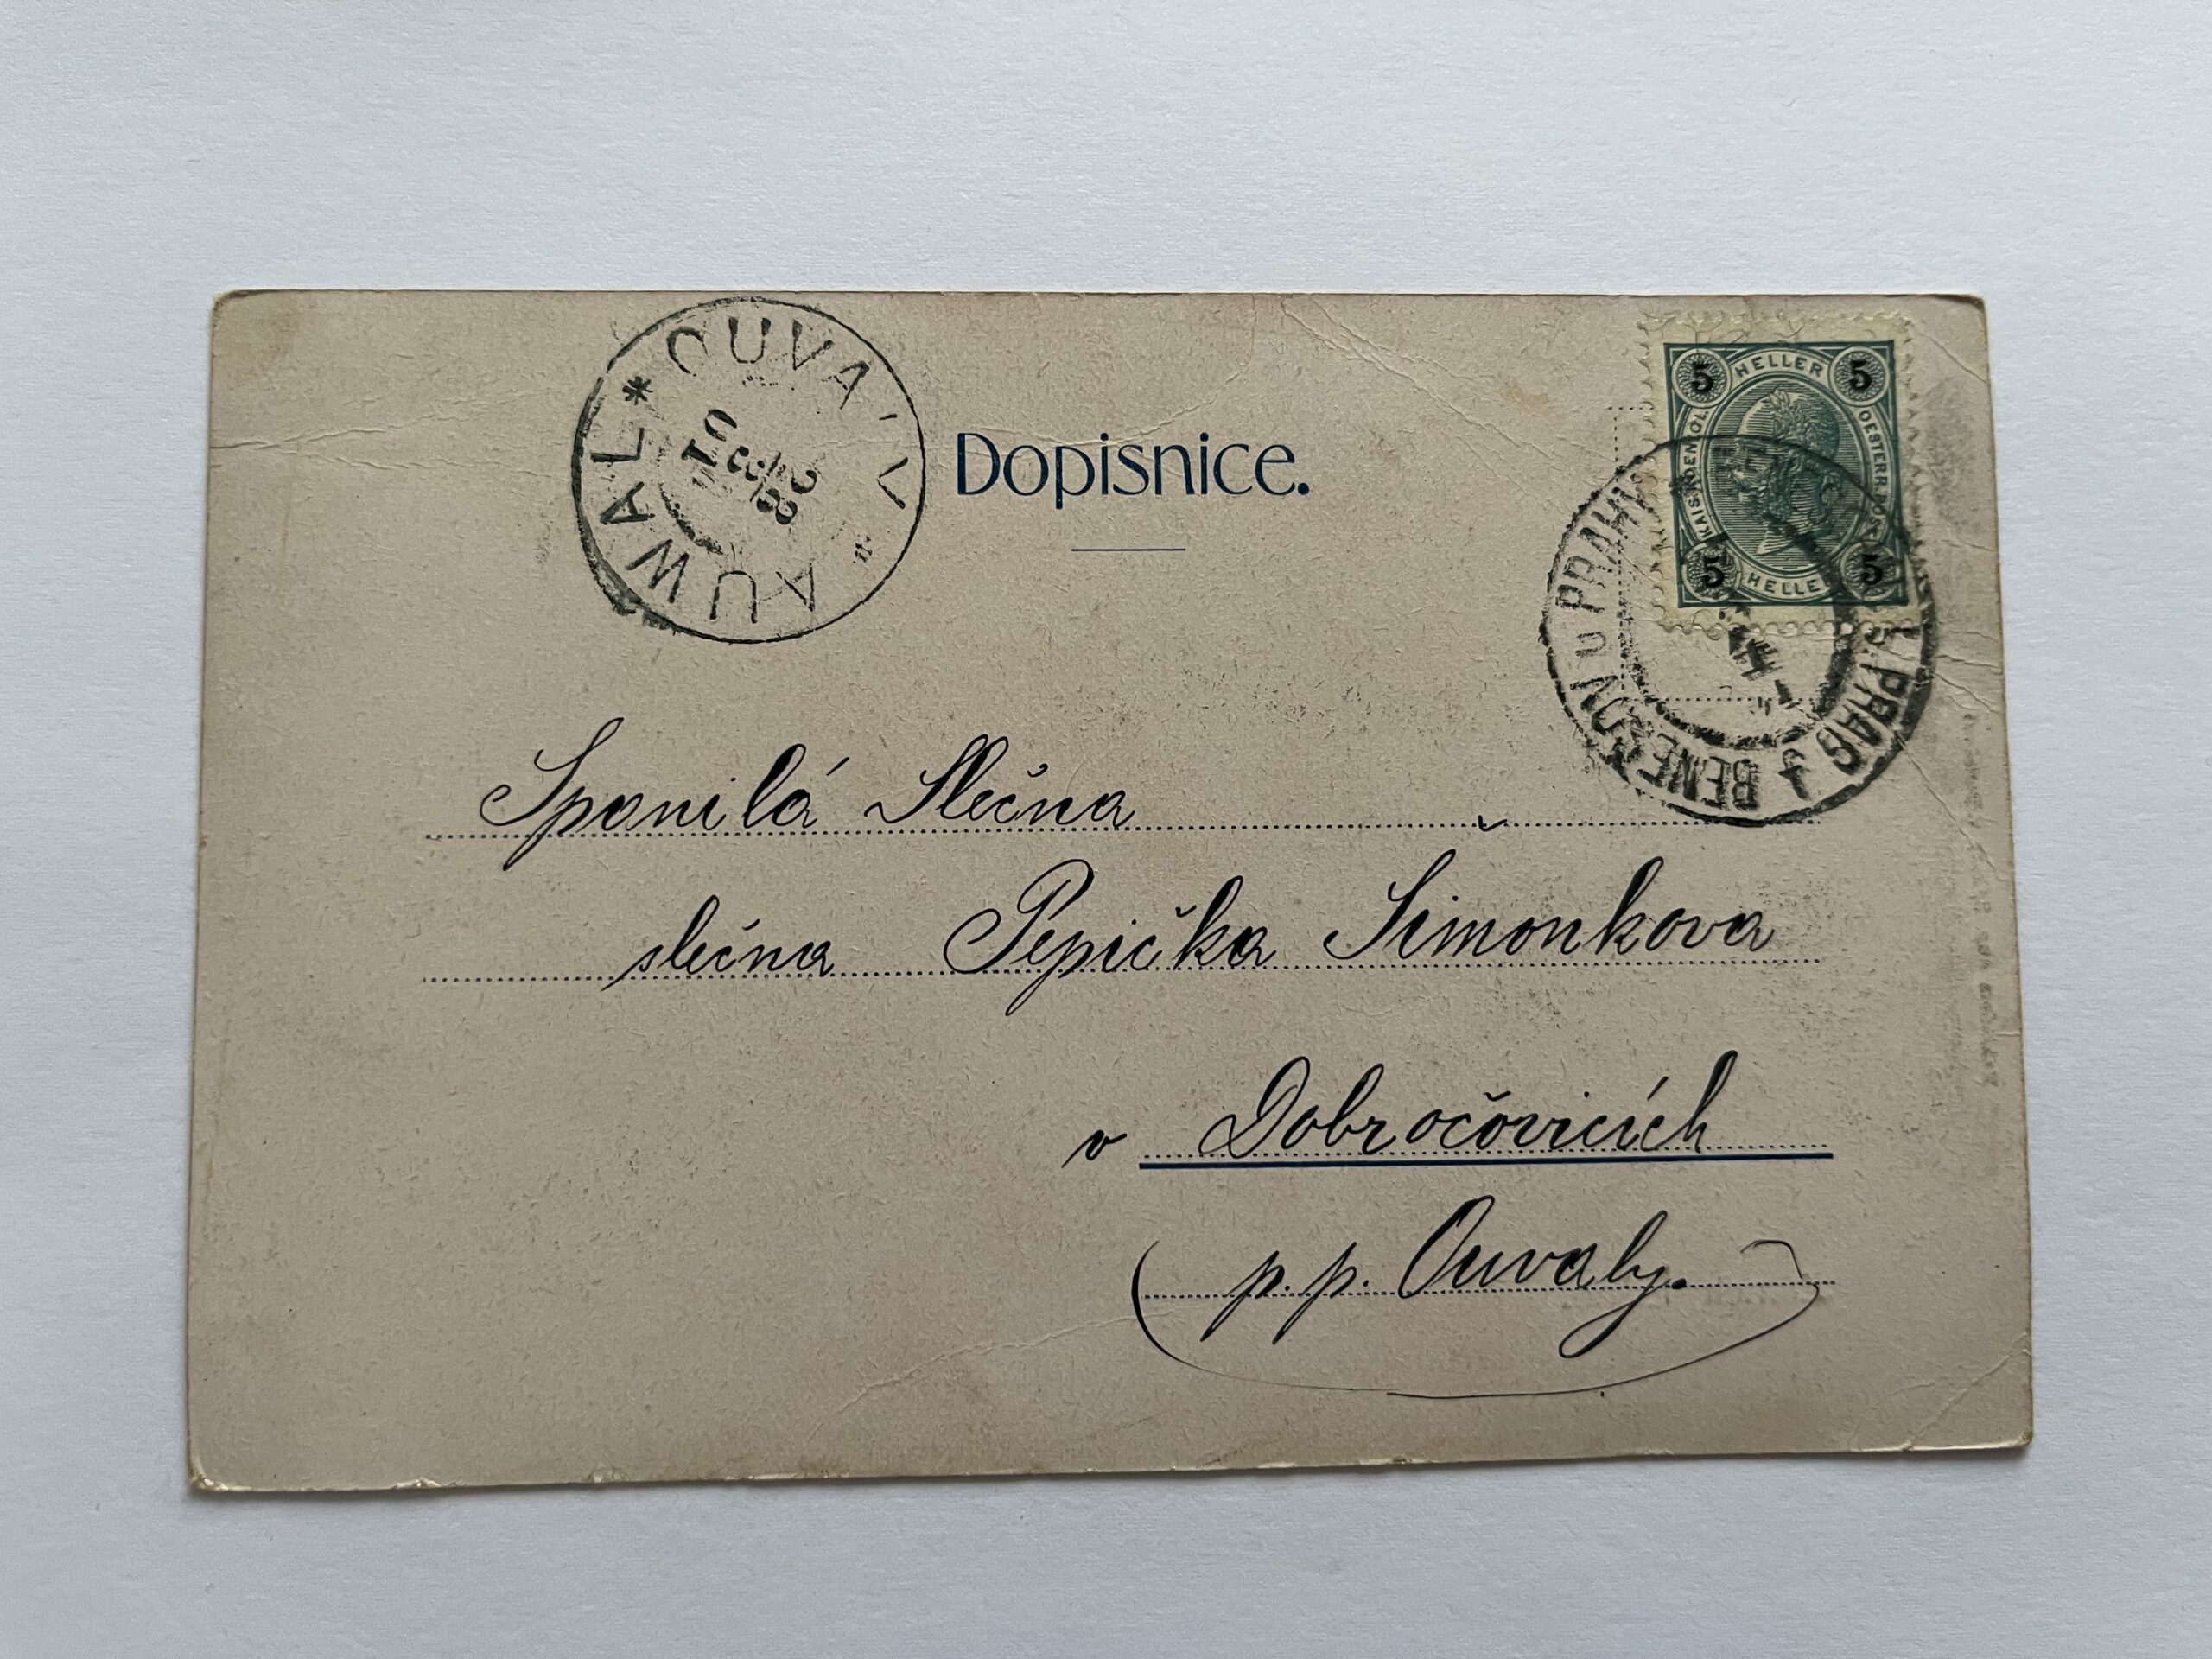 OUVALY
AUWAL *
Dopisnice.
5 HELLER 5
KAIS. KOENIGL. OESTERR. POST
5 HELLER 5
BENEŠOV U PRAHY
PRAG
Spanilá Slečna
slečna Pepička Šimonkova
v Dobročovicích
(p. p. Ouvaly.)